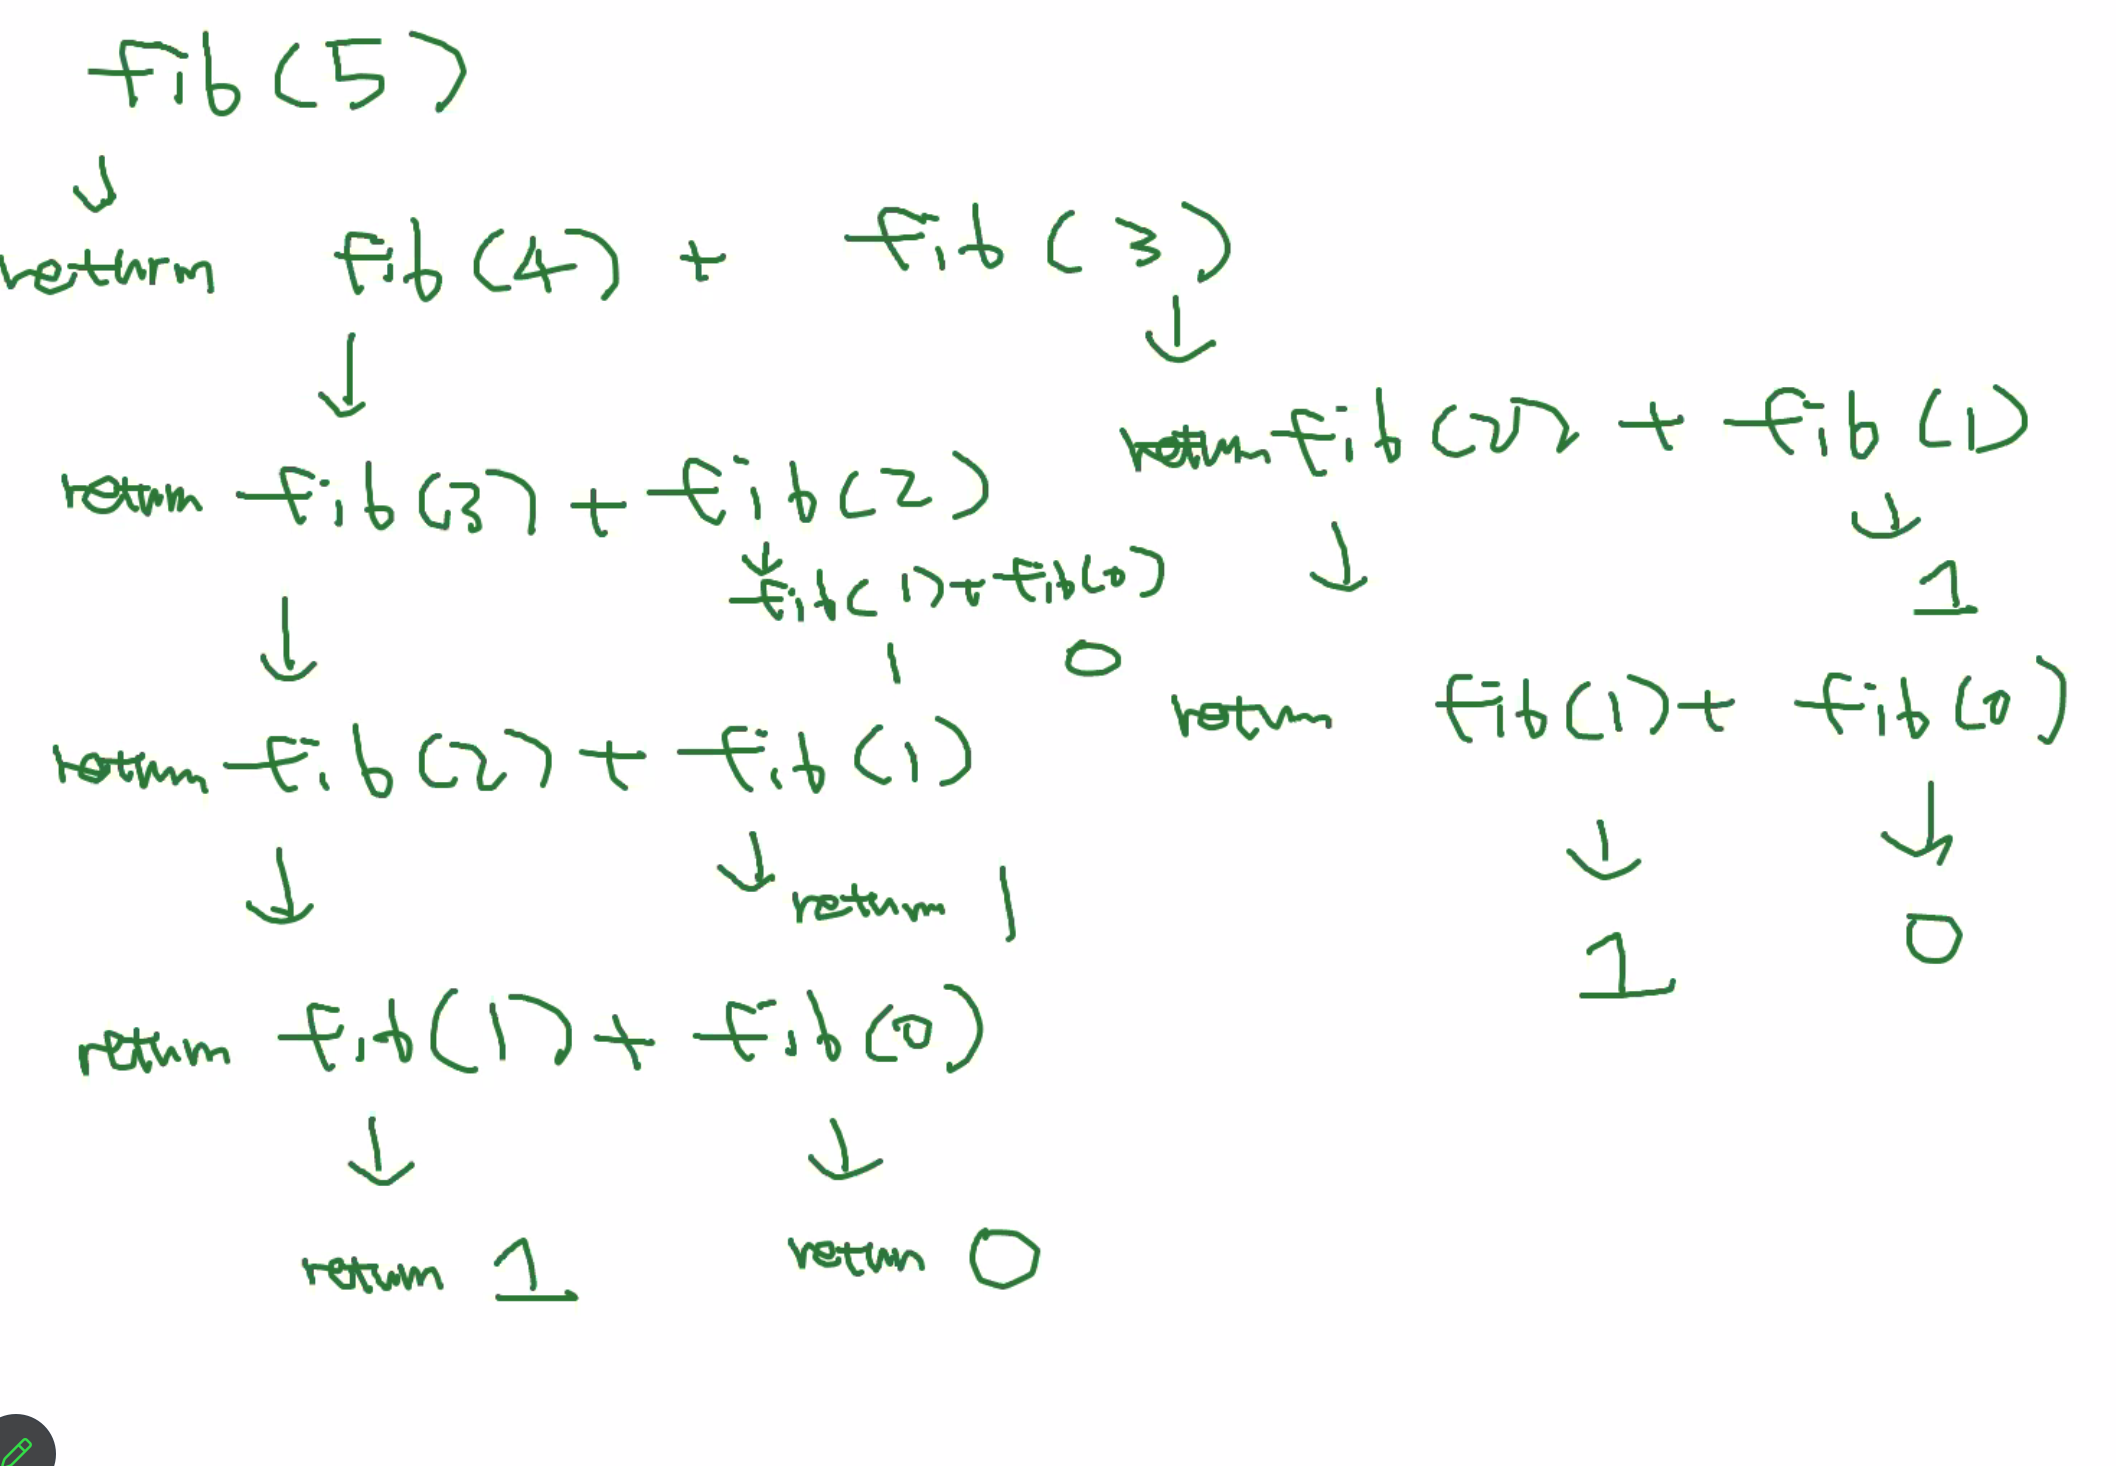 fib(5)
return fib(4) + fib(3)
return fib(2) + fib(1)
return fib(3) + fib(2)
fib(1) + fib(0)
1
1 0
return fib(1) + fib(0)
return fib(2) + fib(1)
return 1
1 0
return fib(1) + fib(0)
return 1 return 0